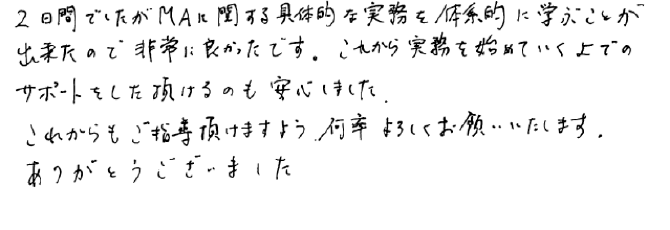 2日間でしたがMAに関する具体的な実務を体系的に学ぶことが
出来たので非常に良かったです。これから実務を始めていく上での
サポートをして頂けるのも安心しました.
これからもご指導頂けますよう、何卒よろしくお願いいたします.
ありがとうございました